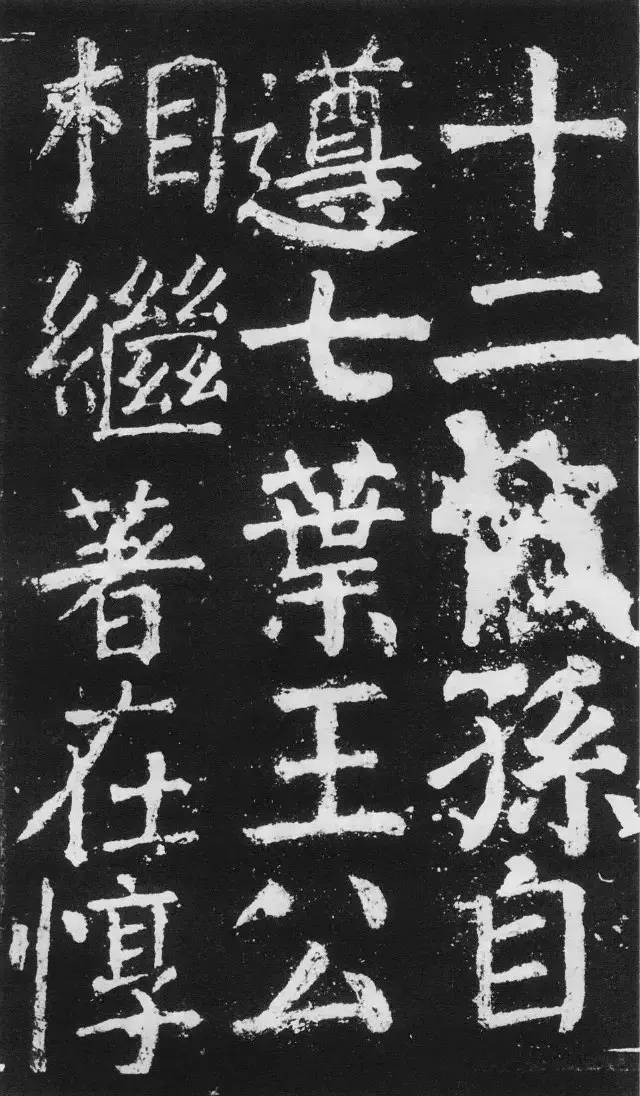 十二孫自
遵七葉王公
相繼著在惇